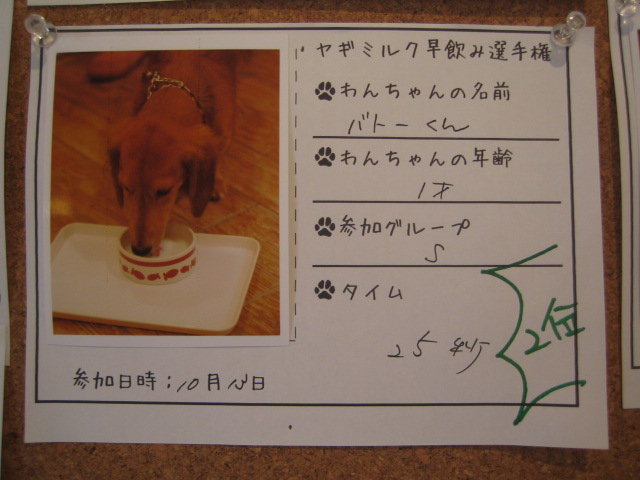 ヤギミルク早飲み選手権
わんちゃんの名前
バトーくん
わんちゃんの年齢
1才
参加グループ
S
タイム
25秒
2位
参加日時:10月13日